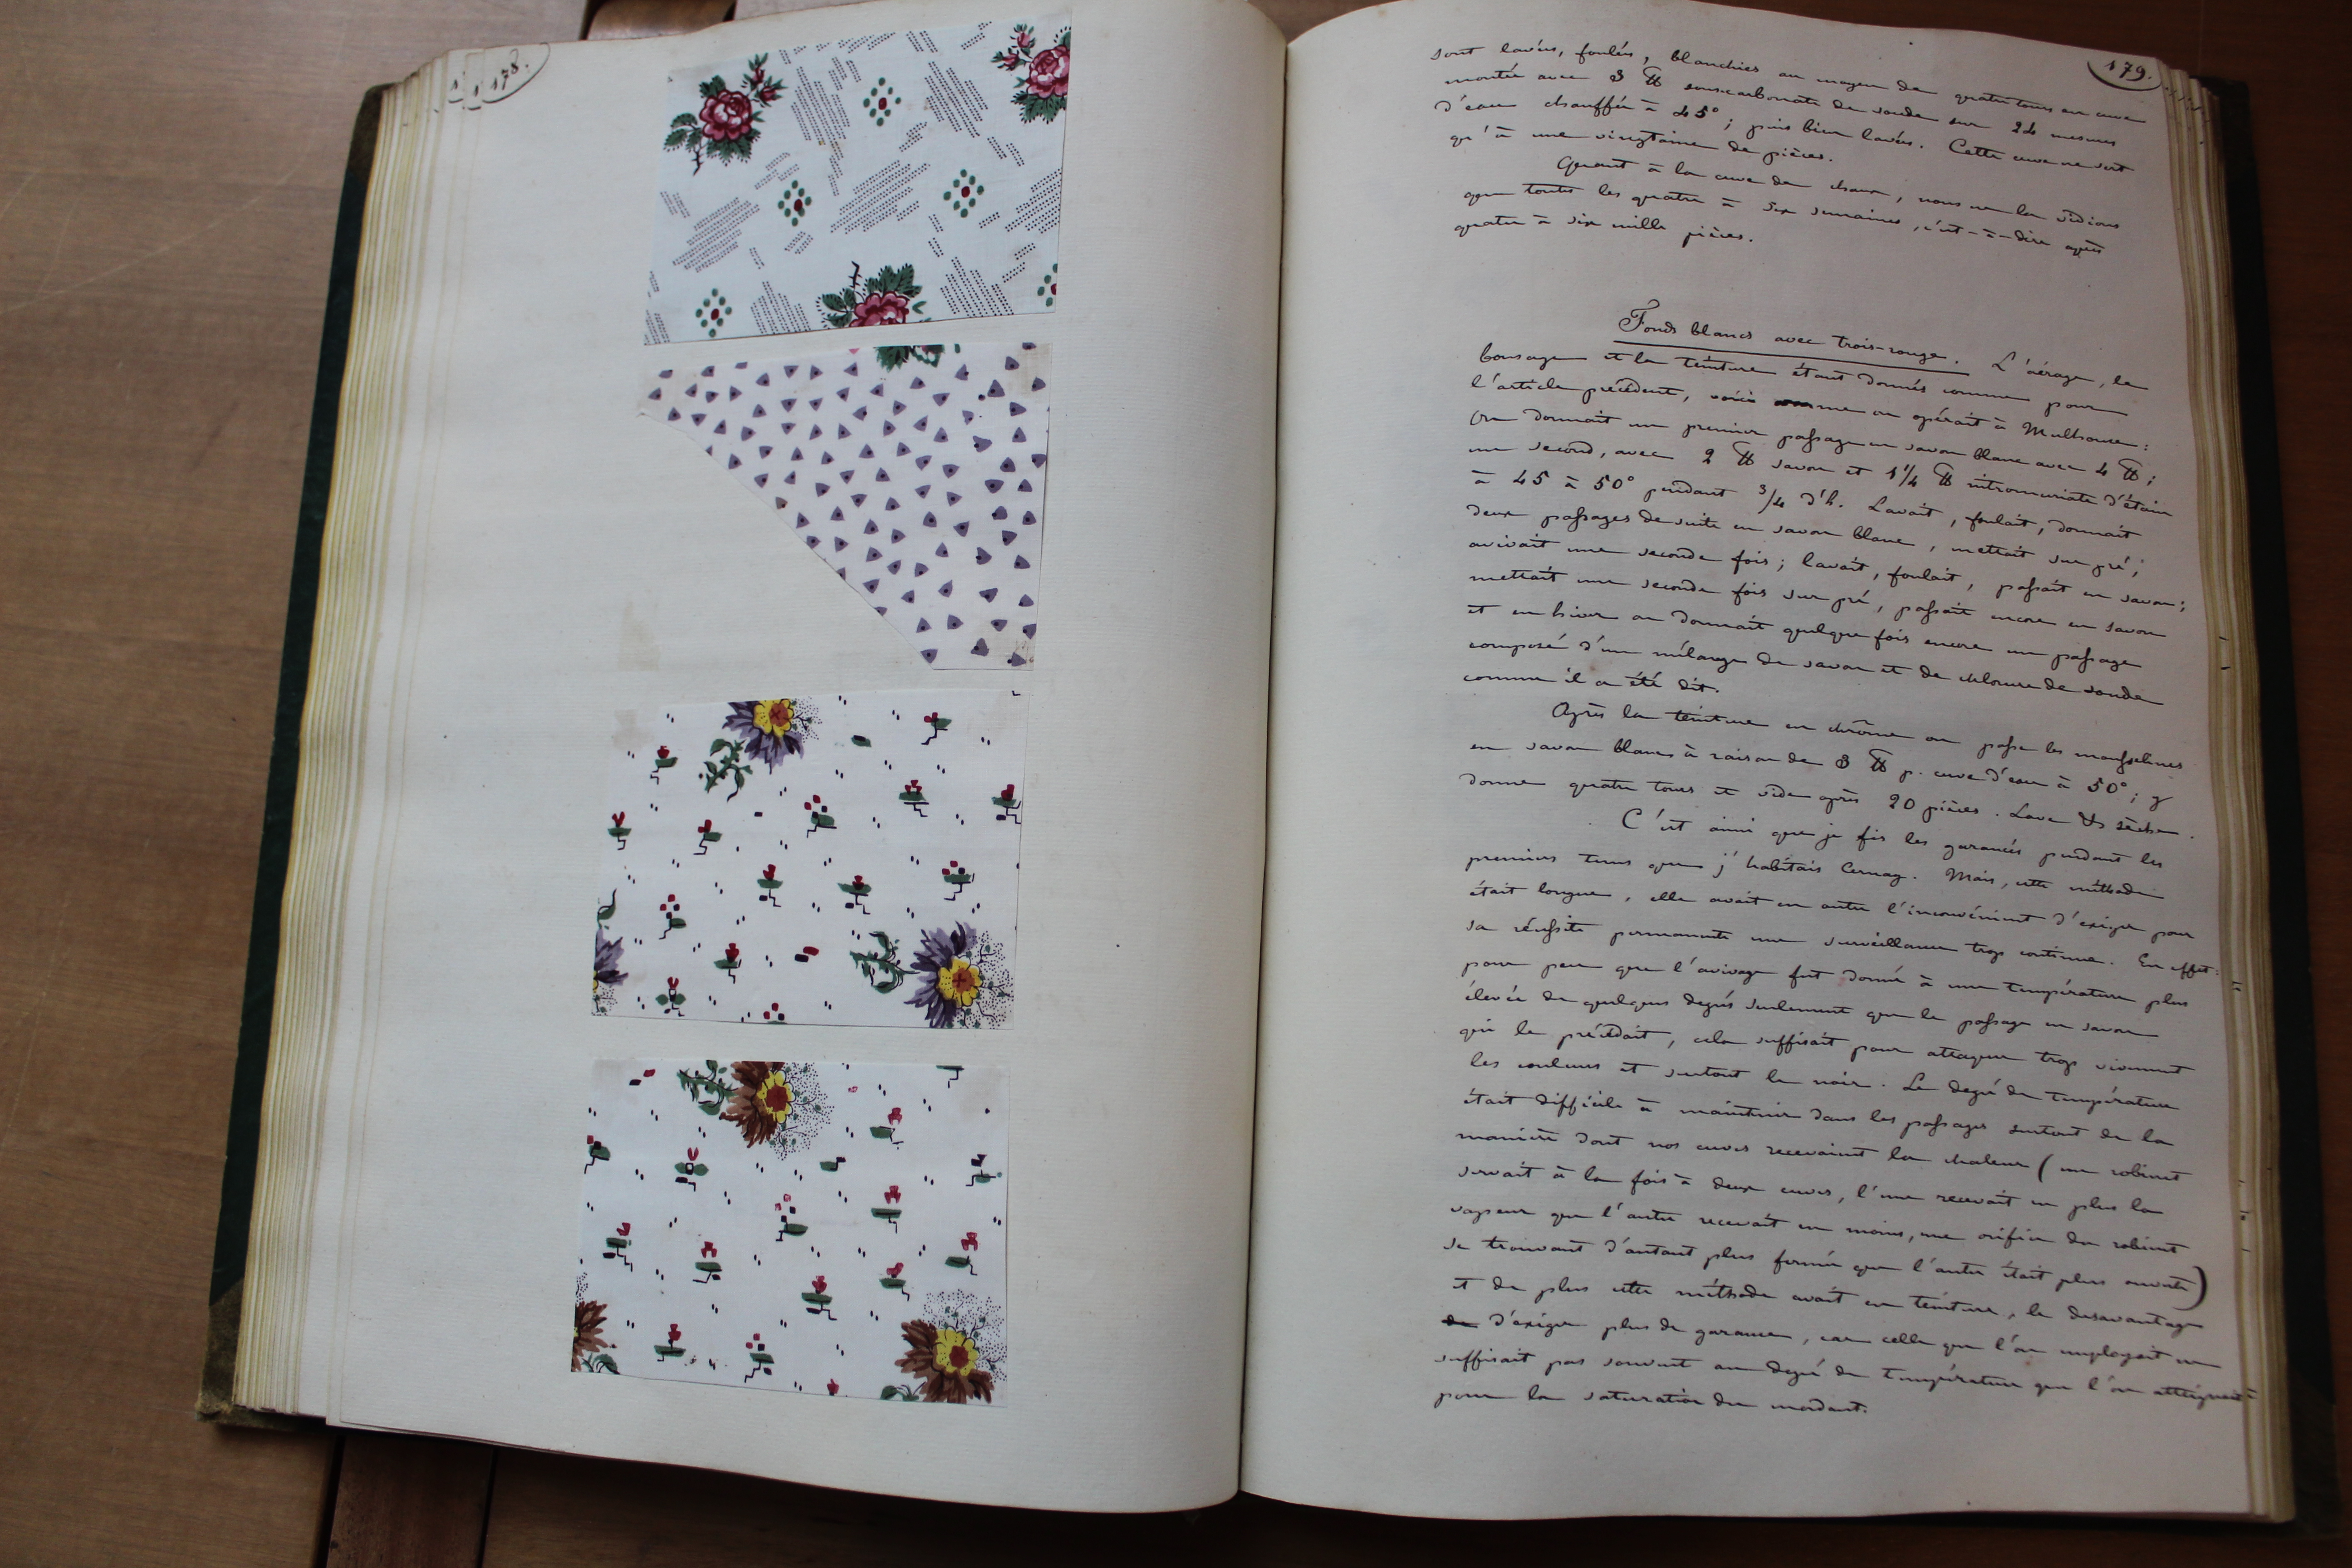 178.
179.
sont lavées, foulées, blanchies au moyen de quatre tours en cuve
montée avec 3 ℔ souscarbonate de soude sur 24 mesures
d'eau chauffée à 45°; puis bien lavées. Cette cuve ne sert
qu'à une vingtaine de pièces.
Quant à la cuve de chaux, nous ne la vidions
que toutes les quatre à six semaines, c'est-à-dire après
quatre à six mille pièces.
Fonds blancs avec trois-rouge. L'aérage, le
bousage et la teinture étant donnés comme pour
l'article précédent, voici comme on opérait à Mulhouse:
On donnait un premier passage en savon blanc avec 4 ℔;
un second, avec 2 ℔ savon et 1 1/4 ℔ nitromuriate d'étain
à 45 à 50° pendant 3/4 d'h. Lavait, foulait, donnait
deux passages de suite en savon blanc, mettait sur pré;
avivait une seconde fois; lavait, foulait, passait en savon;
mettait une seconde fois sur pré, passait encore en savon
et en hiver on donnait quelque fois encore un passage
composé d'un mélange de savon et de chlorure de soude
comme il a été dit.
Après la teinture en chrôme on passe les mousselines
en savon blanc à raison de 3 ℔ p. cuve d'eau à 50°; y
donne quatre tours et vide après 20 pièces. Lave & sèche.
C'est ainsi que je fis les garancés pendant les
premiers tems que j'habitais Cernay. Mais, cette méthode
était longue, elle avait en outre l'inconvénient d'exiger pour
sa réussite permanente une surveillance trop continue. En effet:
pour peu que l'avivage fut donné à une température plus
élevée de quelques degrés seulement que le passage en savon
qui le précédait, cela suffisait pour attaquer trop vivement
les couleurs et surtout le noir. Le degré de température
était difficile à maintenir dans les passages surtout de la
manière dont nos cuves recevaient la chaleur (un robinet
servait à la fois à deux cuves, l'une recevait en plus la
vapeur que l'autre recevait en moins, une orifice du robinet
se trouvant d'autant plus fermée que l'autre était plus ouverte)
et de plus cette méthode avait en teinture, le desavantage
de d'exiger plus de garance, car celle que l'on employait ne
suffisait pas souvent au degré de température que l'on atteignait
pour la saturation du mordant.